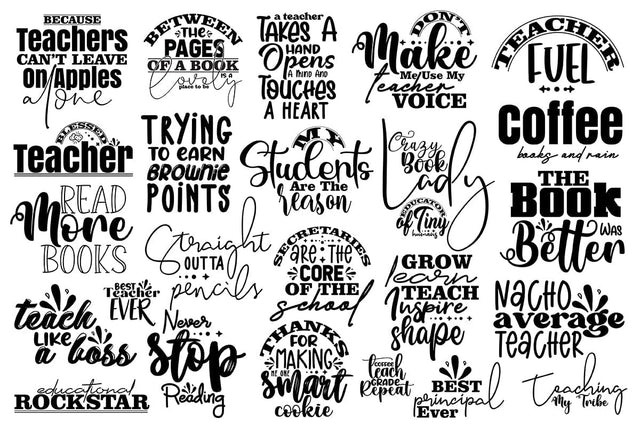 BECAUSE
Teachers
CAN'T LEAVE
on Apples
alone
BETWEEN
THE
PAGES
OF A BOOK
IS A
lovely
place to be
a teacher
TAKES A
HAND
Opens
A MIND AND
TOUCHES
A HEART
DON'T
Make
Me/Use My
teacher
VOICE
TEACHER
FUEL
BLESSED
Teacher
TRYING
TO EARN
BROWNIE
POINTS
MY
Students
ARE The
Reason
Crazy
Book
Lady
Coffee
books and rain
READ
More
BOOKS
Straight
OUTTA
pencils
SECRETARIES
ARE THE
CORE
OF THE
school
EDUCATOR
of Tiny
THE
Book
WAS
Better
BEST
Teacher
EVER
GROW
learn
TEACH
Inspire
shape
teach
LIKE
a boss
Never
Stop
Reading
THANKS
FOR
MAKING
ME ONE
smart
cookie
NACHO
average
TEACHER
educational
ROCKSTAR
coffee
Teach
GRADE
Repeat
BEST
principal
Ever
Teaching
My Tribe